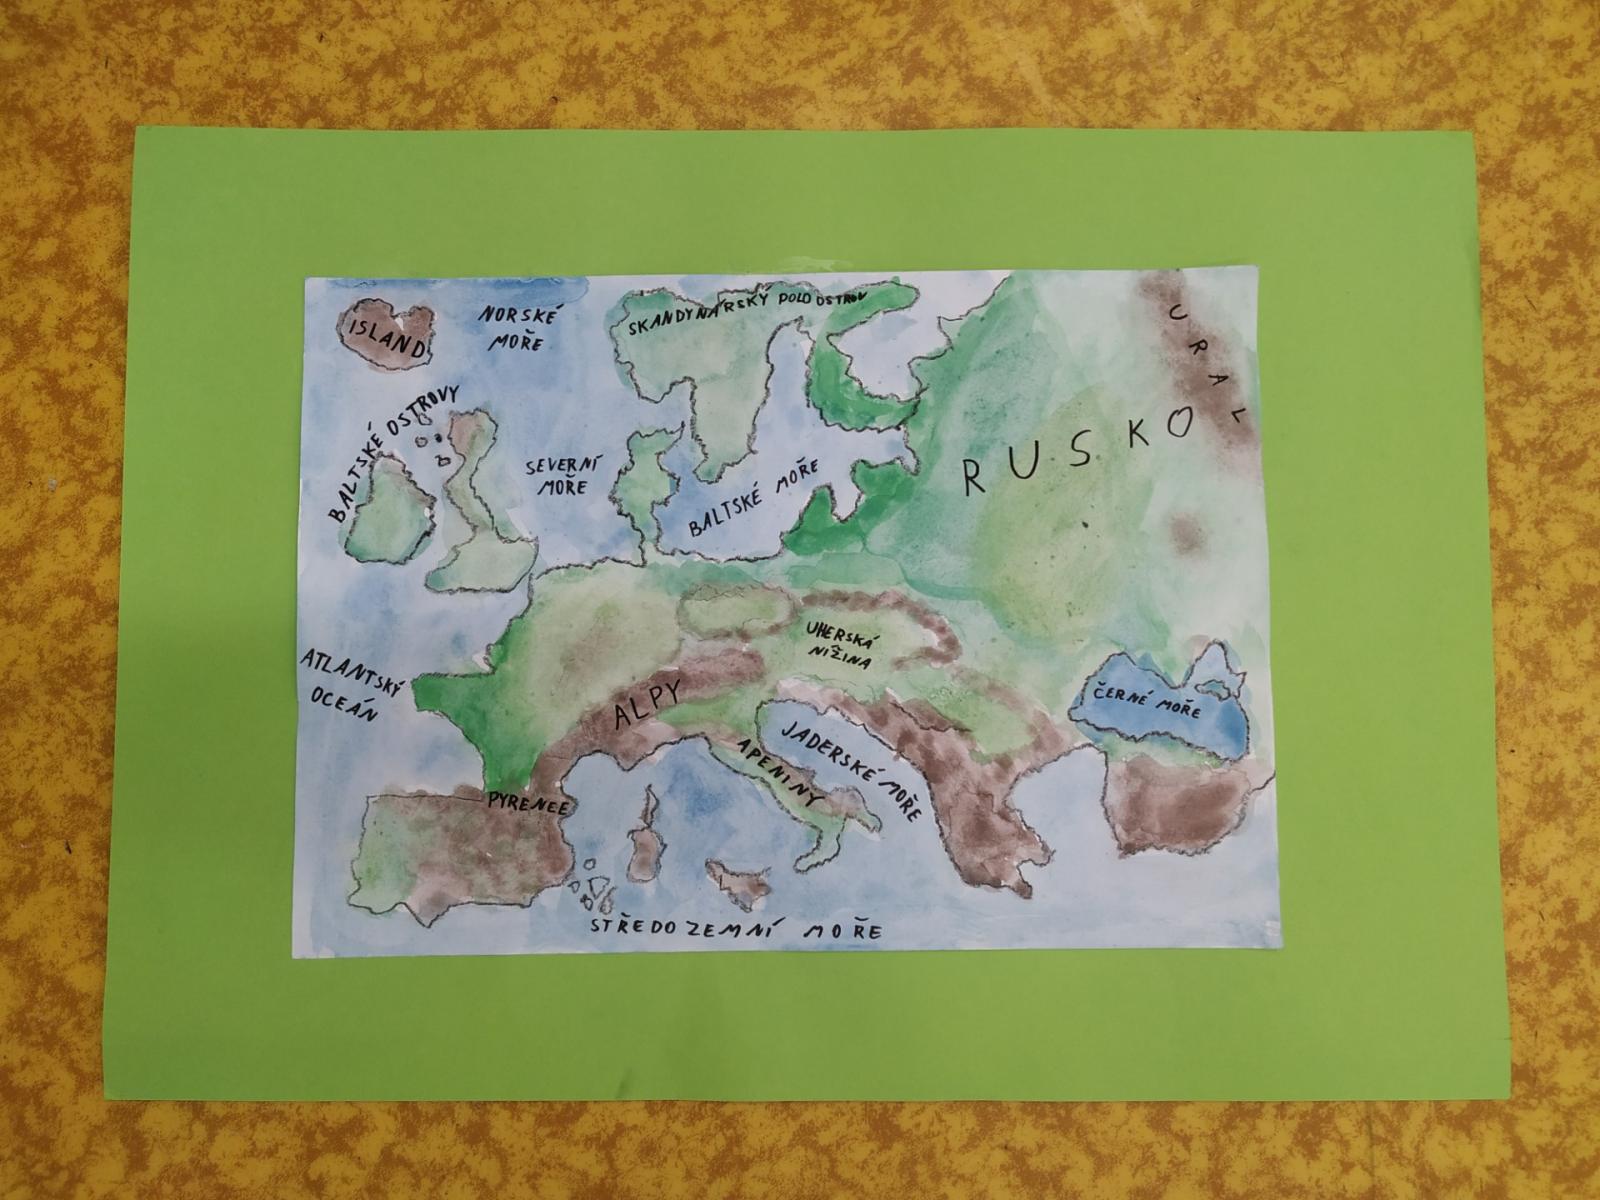 ISLAND
NORSKÉ
MOŘE
SKANDYNÁRSKÝ POLOOSTROV
URAL
BALTSKÉ OSTROVY
SEVERNÍ
MOŘE
BALTSKÉ MOŘE
RUSKO
ATLANTSKÝ
OCEÁN
UHERSKÁ
NIŽINA
ALPY
ČERNÉ MOŘE
JADERSKÉ MOŘE
APENINY
PYRENEE
STŘEDOZEMNÍ MOŘE